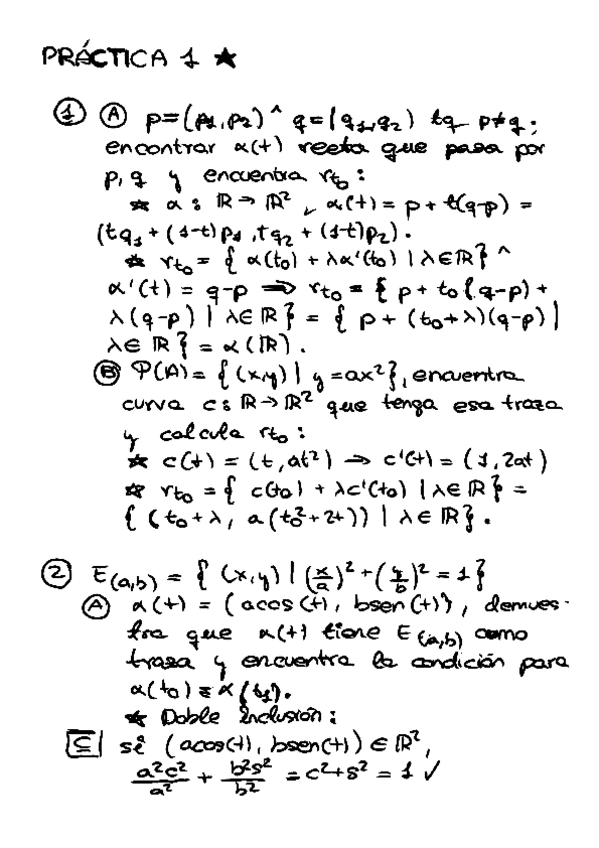 PRÁCTICA 1 ★
① Ⓐ p=(p₁,p₂) ^ q=(q₁,q₂) tq p≠q;
encontrar α(t) recta que pasa por
p, q y encuentra r_t₀ :
★ α : ℝ → ℝ², α(t) = p + t(q-p) =
(tq₁ + (1-t)p₁, tq₂ + (1-t)p₂).
★ r_t₀ = { α(t₀) + λα'(t₀) | λ∈ℝ } ^
α'(t) = q-p ⟹ r_t₀ = { p + t₀(q-p) +
λ(q-p) | λ∈ℝ } = { p + (t₀+λ)(q-p) |
λ∈ℝ } = α(ℝ).
Ⓑ Ψ(A) = { (x,y) | y = ax² }, encuentra
curva c : ℝ → ℝ² que tenga esa traza
y calcula r_t₀ :
★ c(t) = (t, at²) → c'(t) = (1, 2at)
★ r_t₀ = { c(t₀) + λc'(t₀) | λ∈ℝ } =
{ (t₀+λ, a(t₀²+2t)) | λ∈ℝ }.
② E(a,b) = { (x,y) | (x/a)² + (y/b)² = 1 }
Ⓐ α(t) = (acos(t), bsen(t)), demues-
tra que α(t) tiene E(a,b) como
traza y encuentra la condición para
α(t₀) = α(t₁).
★ Doble Inclusión :
⊆ sé (acos(t), bsen(t)) ∈ ℝ²,
a²c²/a² + b²s²/b² = c²+s² = 1 ✓